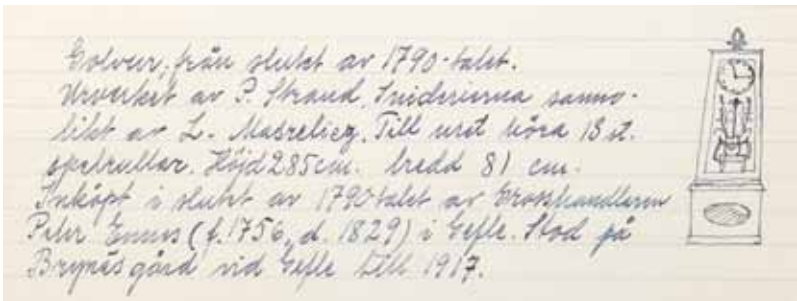 Golvur, från slutet av 1790-talet.
Urverket av P. Strand. Sniderierna sanno-
likt av L. Masreliez. Till uret höra 13 st.
spelrullar. Höjd 285 cm. bredd 81 cm.
Inköpt i slutet av 1790 talet av Grosshandlaren
Peter Ennes (f. 1756, d. 1829) i Gefle. Stod på
Brynäs gård vid Gefle till 1917.